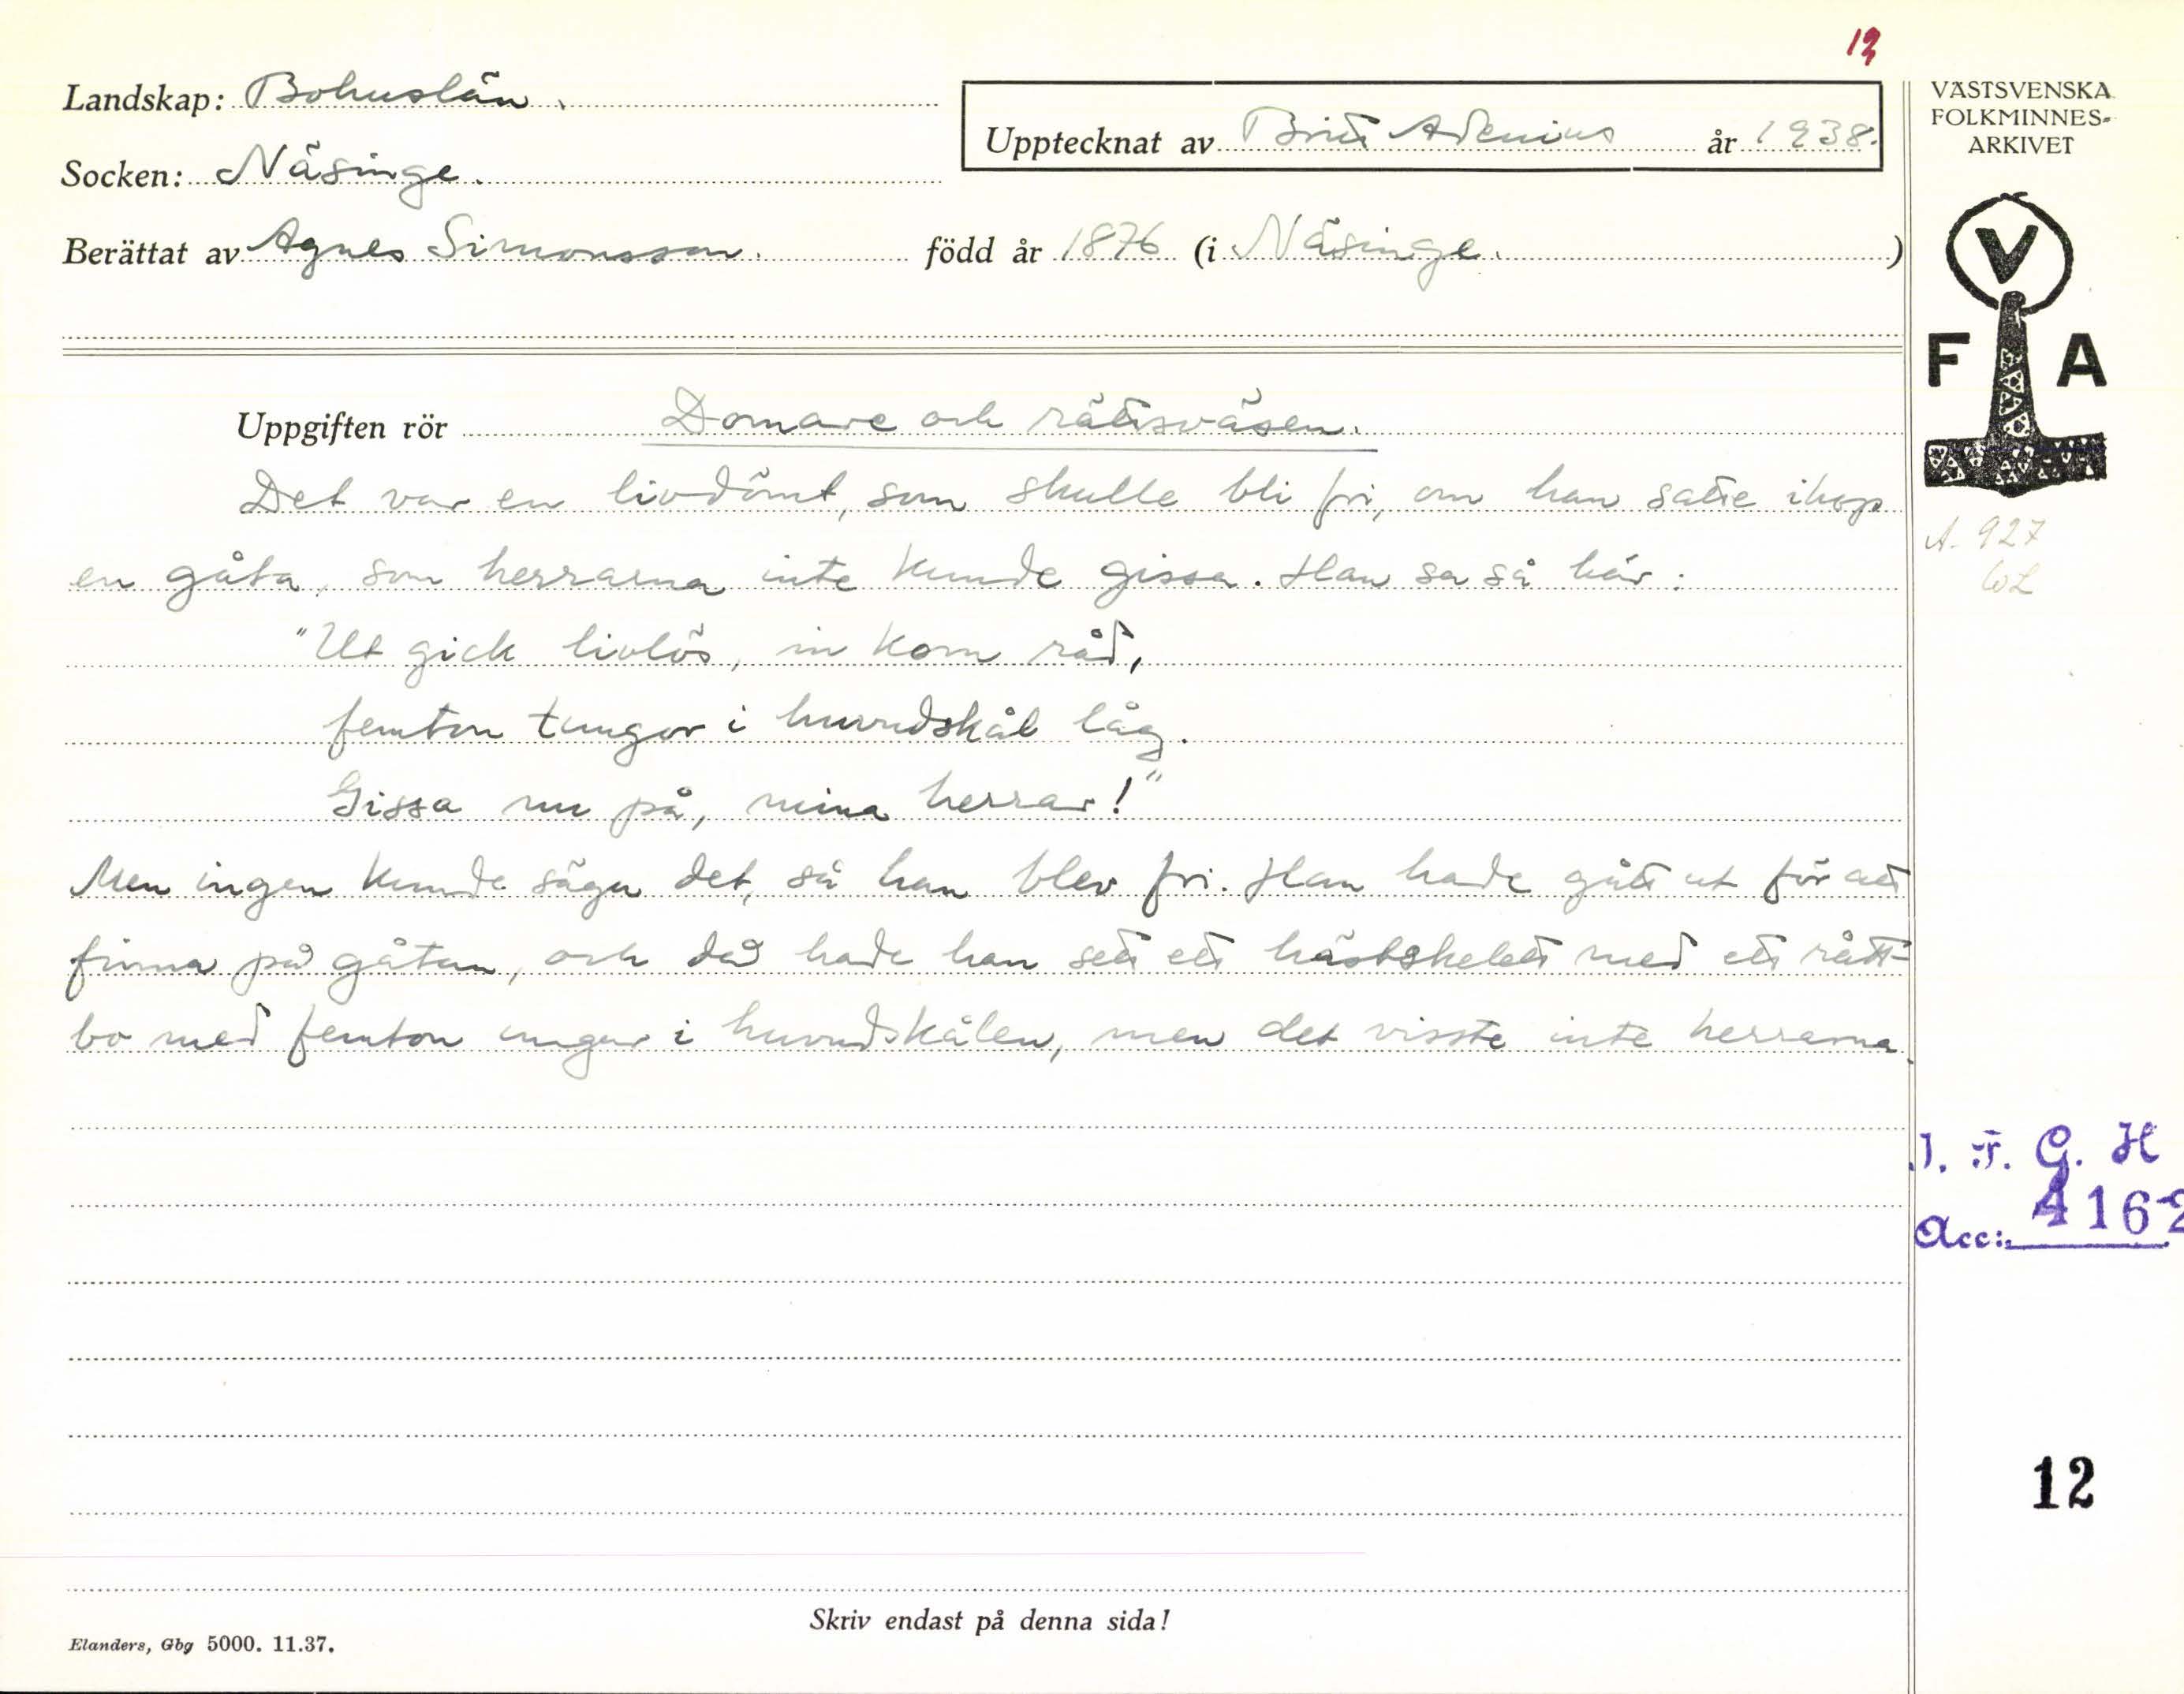 13
Landskap: Bohuslän.
Upptecknat av Britt Adenius år 1938.
Socken: Näsinge.
Berättat av Agnes Simonsson. född år 1876 (i Näsinge. )
VÄSTSVENSKA
FOLKMINNES-
ARKIVET
V
F A
A. 927
WL
Uppgiften rör Domare och rättsväsen.
Det var en livdömt, som skulle bli fri, om han satte ihop
en gåta, som herrarna inte kunde gissa. Han sa så här:
"Ut gick livlös, in kom råd,
femton tungor i huvudskål låg.
Gissa nu på, mina herrar!"
Men ingen kunde säga det, så han blev fri. Han hade gått ut för att
finna på gåtan, och då hade han sett ett hästskelett med ett rått-
bo med femton ungar i huvudskålen, men det visste inte herrarna.
I. F. G. H
Acc: 4162
12
Skriv endast på denna sida!
Elanders, Gbg 5000. 11.37.